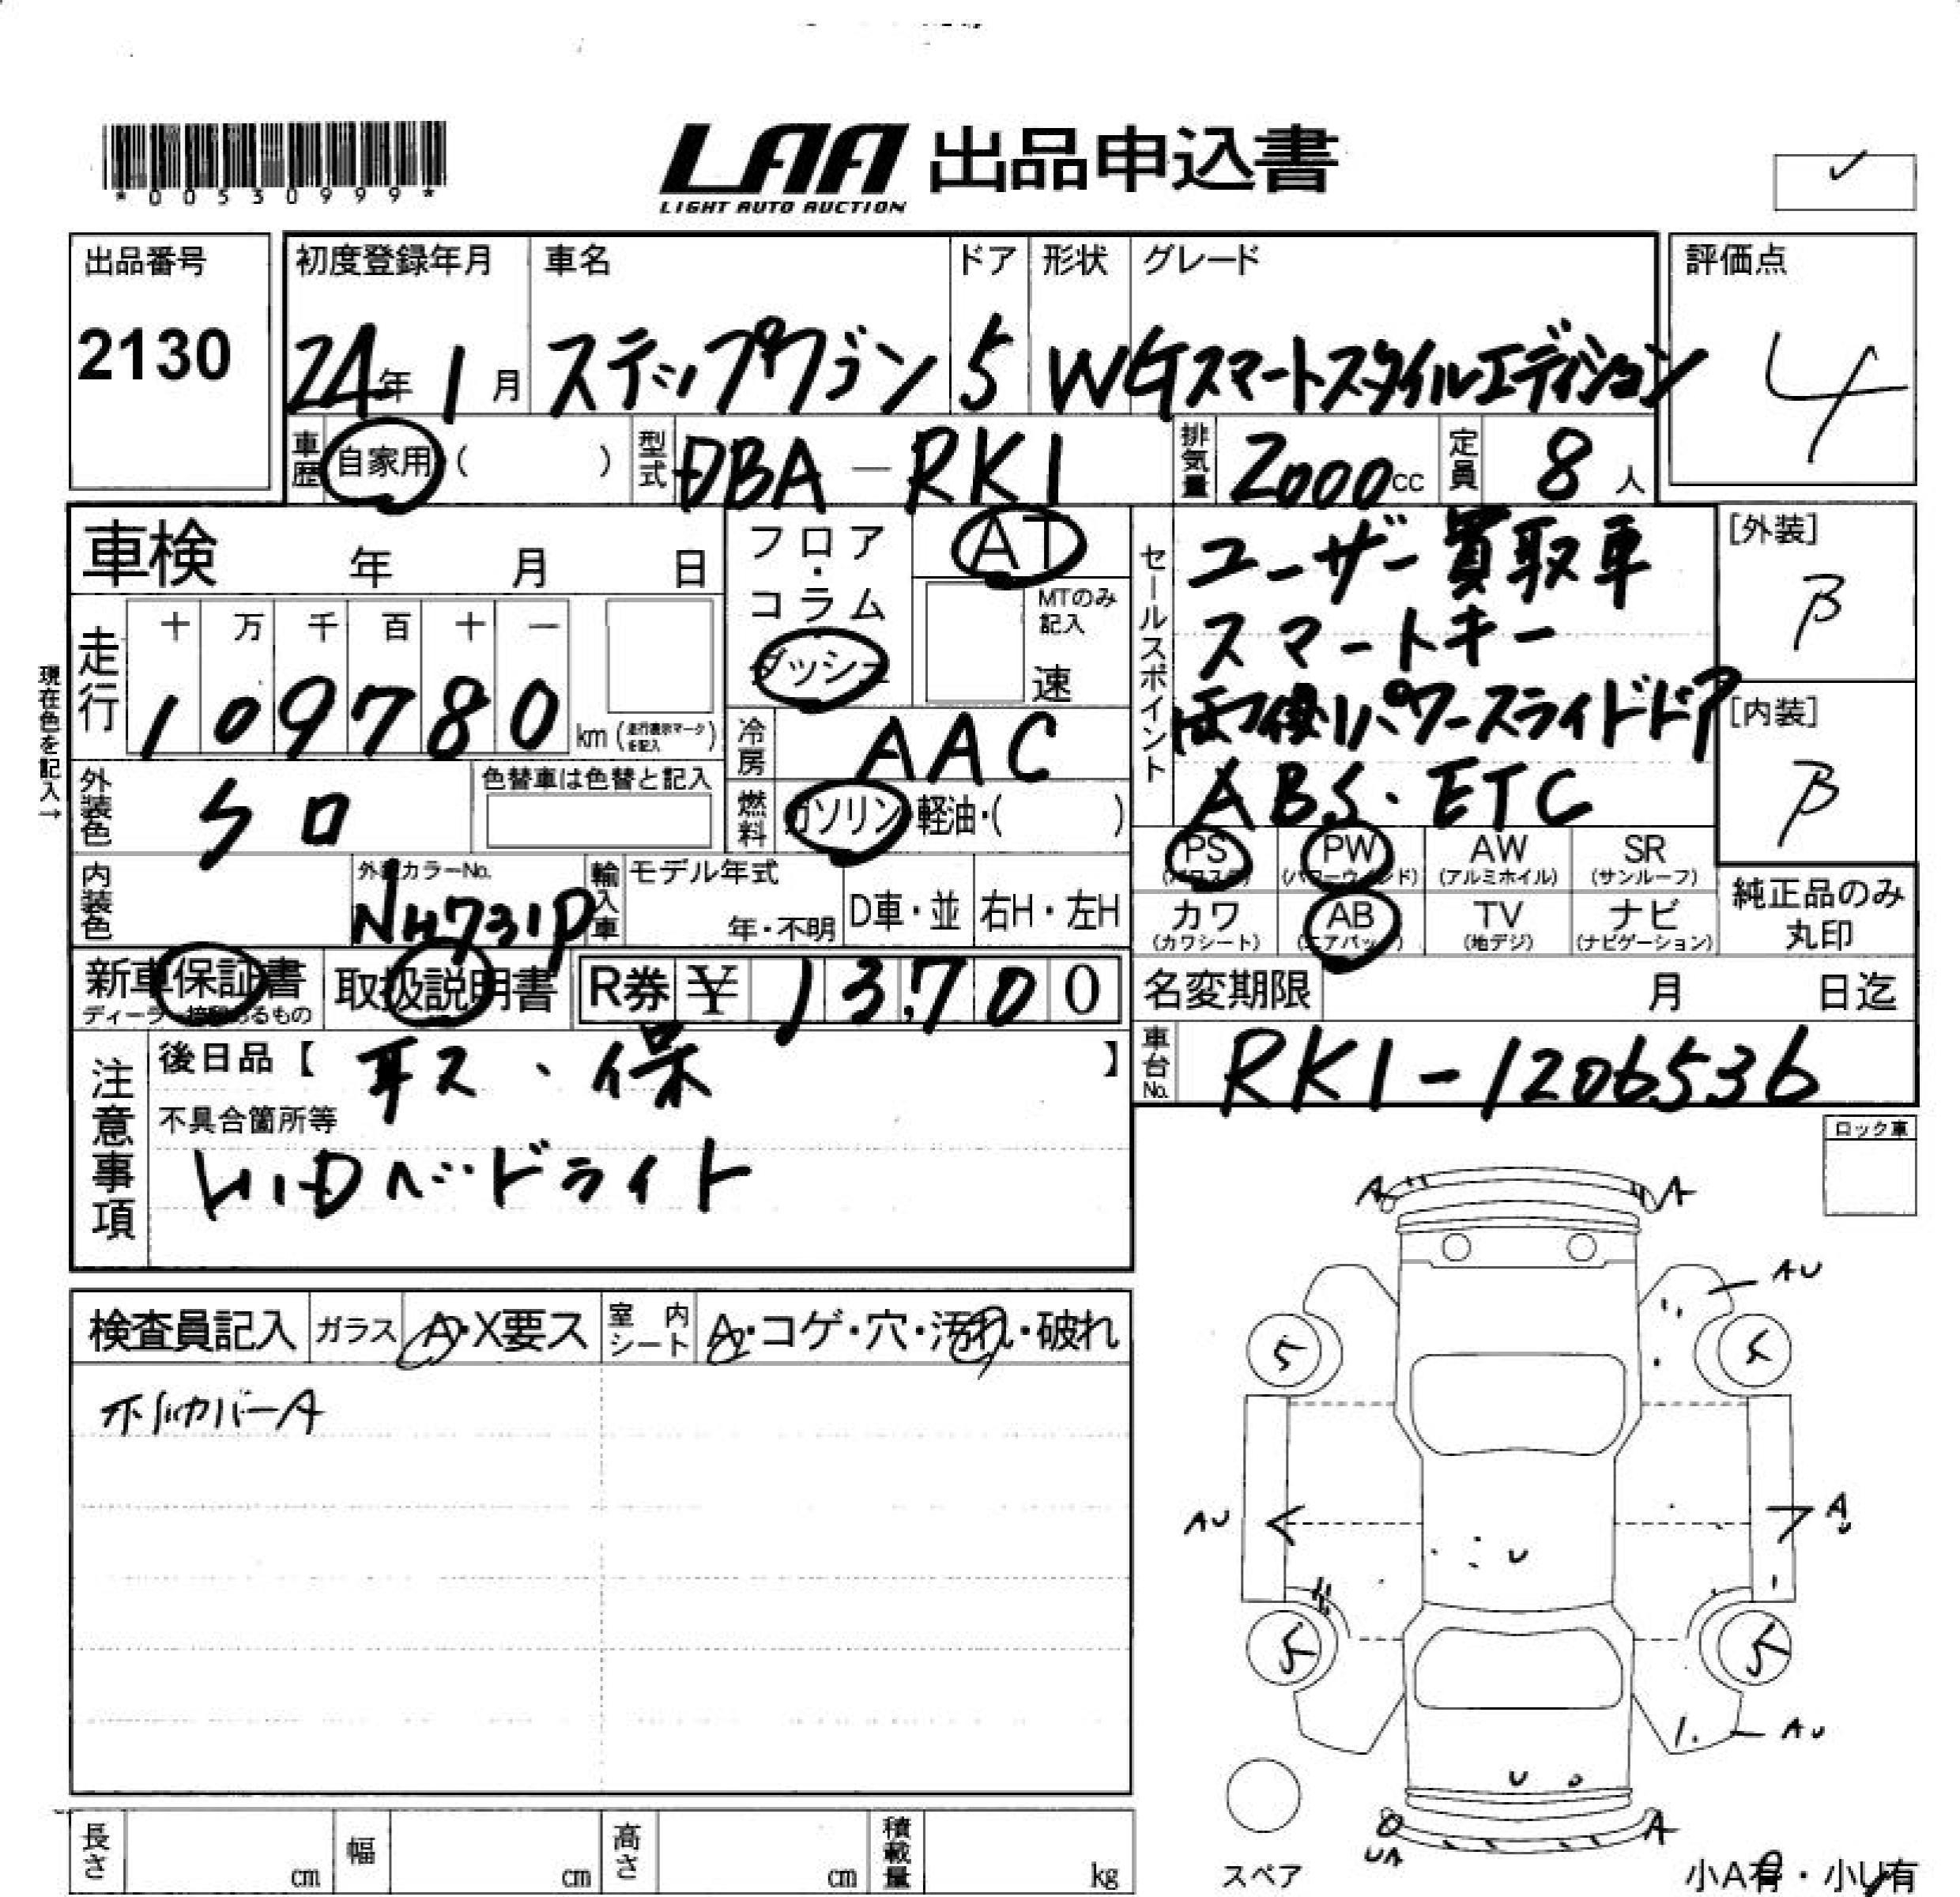 *00530999*
LAA 出品申込書
LIGHT AUTO AUCTION
出品番号
2130
初度登録年月
24年1月
車名
ステップワゴン
ドア
5
形状
W
グレード
Gスマートスタイルエディション
評価点
4
車歴 自家用 ( )
型式 DBA-RK1
排気量 2000cc
定員 8人
車検 年 月 日
フロア・コラム
ダッシュ
AT
MTのみ記入
速
セールスポイント
ユーザー買取車
スマートキー
両側パワースライドドア
ABS・ETC
[外装]
B
[内装]
B
現在色を記入→
走行
十 万 千 百 十 一
109780 km (走行表示マークを記入)
冷房 AAC
外装色 クロ
色替車は色替と記入
燃料 ガソリン・軽油・( )
PS (パワステ)
PW (パワーウインド)
AW (アルミホイル)
SR (サンルーフ)
カワ (カワシート)
AB (エアバッグ)
TV (地デジ)
ナビ (ナビゲーション)
純正品のみ丸印
内装色
外装カラーNo.
NH731P
輸入車
モデル年式
年・不明
D車・並
右H・左H
新車保証書
ディーラー捺印あるもの
取扱説明書
R券 ¥ 13,700
名変期限 月 日迄
車台No. RK1-1206536
注意事項
後日品【 取ス、保 】
不具合箇所等
HIDヘッドライト
ロック車
検査員記入
ガラス A・X要ス
室内シート A・コゲ・穴・汚れ・破れ
ホイルカバーA
A A
AU
5
AU
A
U
U
5 5
AU
U
UA A
スペア
小A有・小U有
長さ cm
幅 cm
高さ cm
積載量 kg